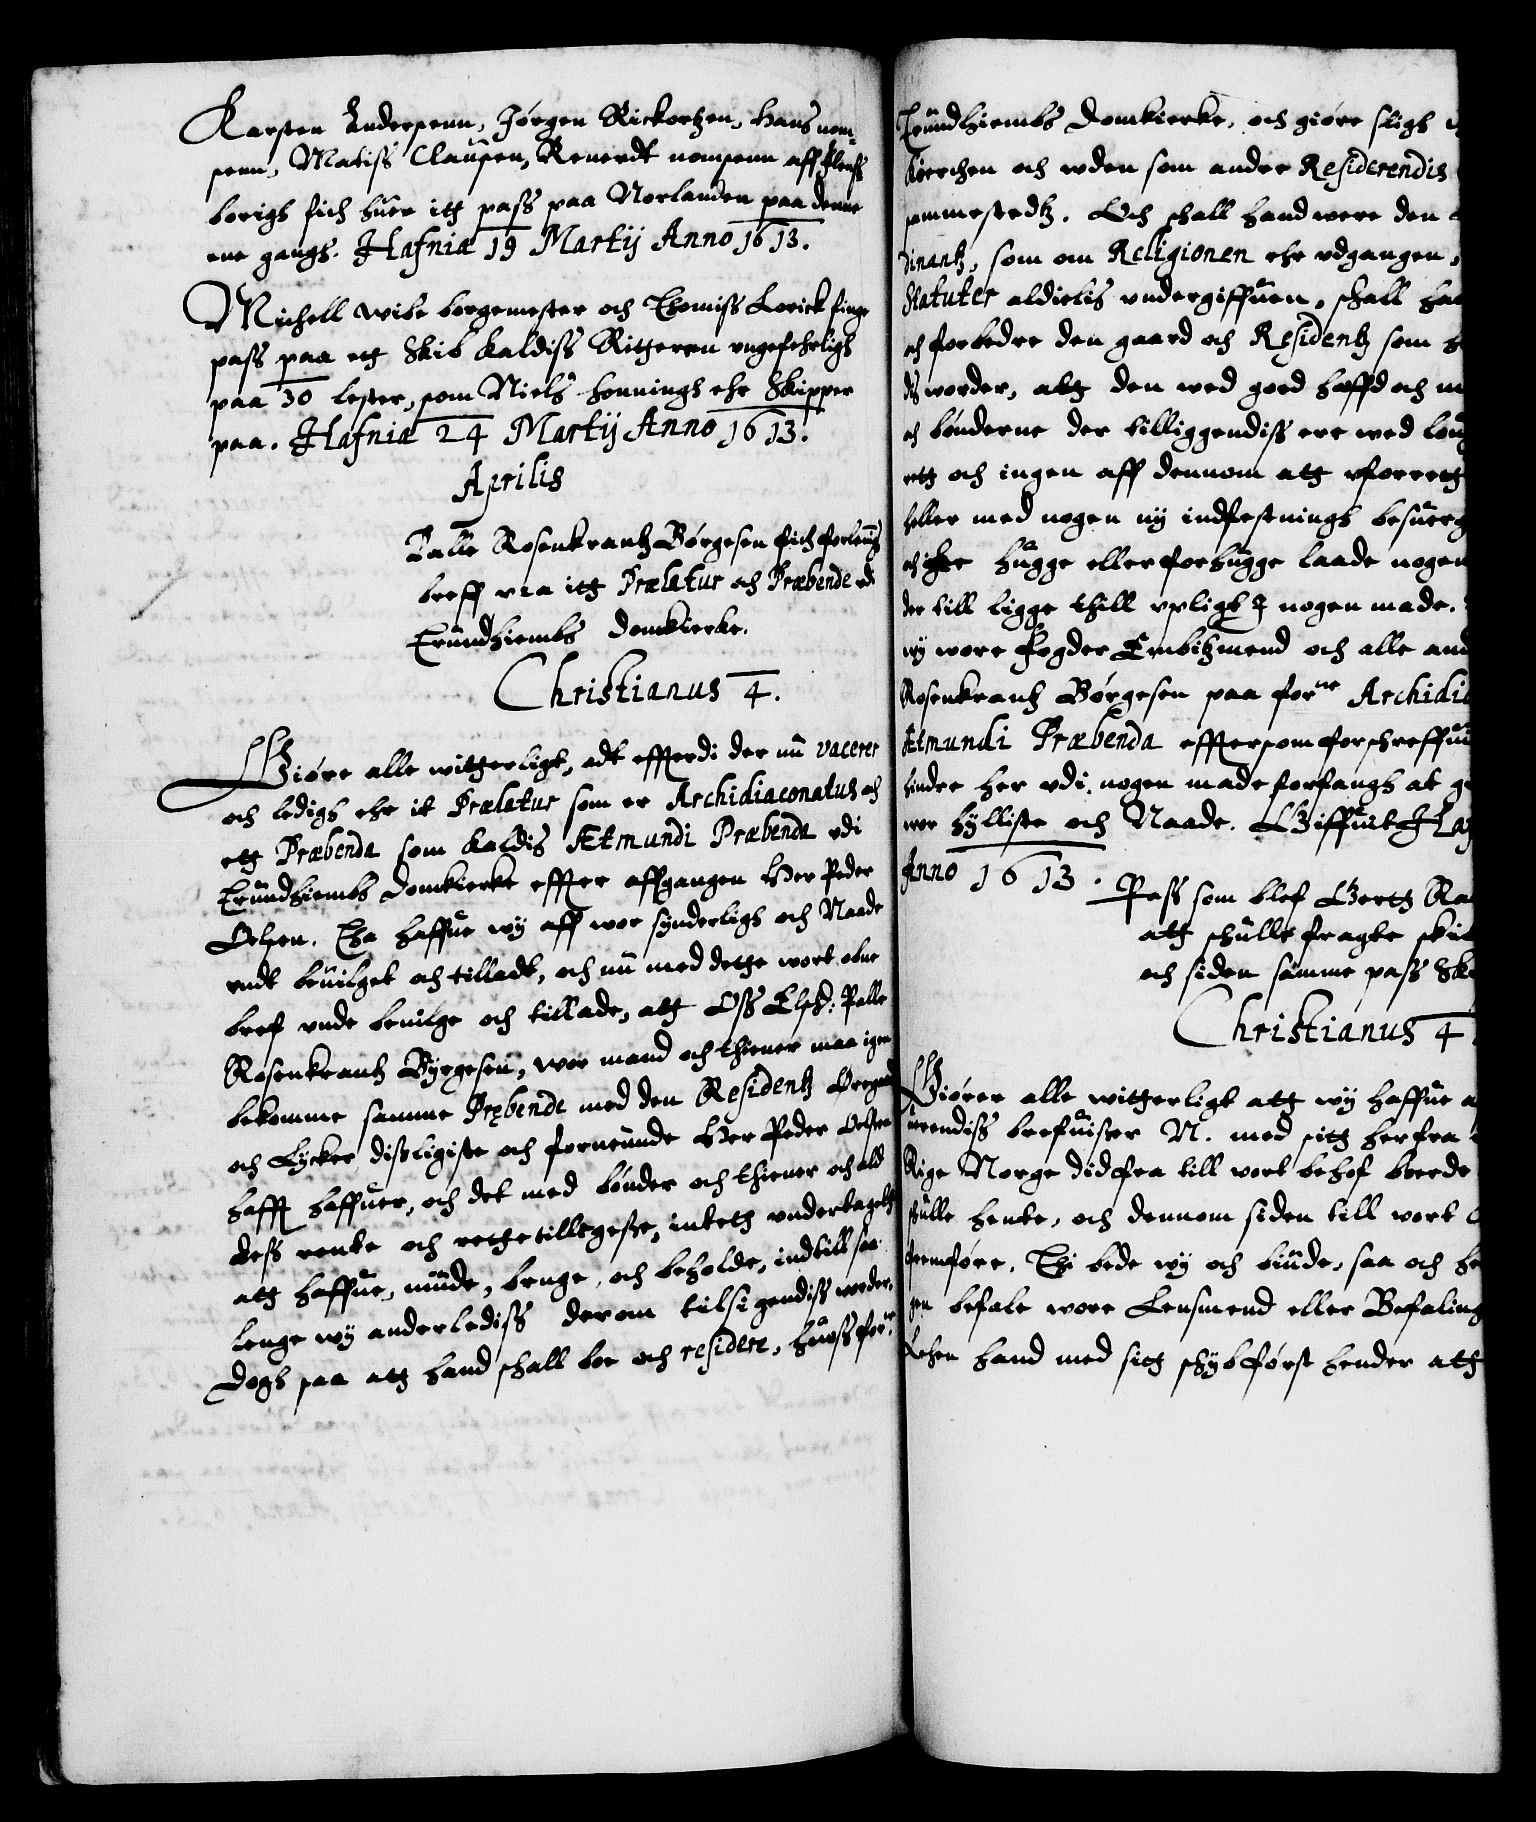 Karsten Anderssenn, Jørgen Rickortzen, Hans nom-
senn, Matiss Claussen, Reuerdt nomsenn aff Flens
borigh fich huer itt pass paa Norlanden paa denne
ene gangh. Hafniæ 19 Martij Anno 1613.
Michell Wibe borgemester och Thomiss Lorick finge
pass paa ett Skib kaldiss Ritteren ungefehrligh
paa 30 lester, som Niels Honningh ehr Skipper
paa. Hafniæ 24 Martij Anno 1613.
Aprilis
Palle Rosenkrantz Børgesen fich forlennings
breff paa itt Prælatur och Præbende vdi
Trundhiembs Domkierke.
Christianus 4.
Giøre alle witterligt, adt effterdi der nu vacerer
och ledigh ehr it Prælatur som er Archidiaconatus och
ett Præbenda som kaldis Ætmundi Præbenda vdi
Trundhiembs Domkierke effter affgangen Her Peder
Oelsen. Tha haffue wy aff wor synderligh och Naade
vndt beuilget och tilladt, och nu med dette wort obne
bref vnde beuilge och tillade, att Oss Elsk: Palle
Rosenkrantz Byrgesen, wor mand och thiener maa igen
bekomme samme Præbende med den Residentz Øregaard
och Lycker disligiste och forneunde Her Peder Oelsen
hafft haffuer, och det med bønder och thiener och ald
dess rente och rette tilleggesse, inteth undertageth
att haffue, niude, bruge, och beholde, indtill saa
lenge wy anderlediss derom tilsigendiss worder.
Dogh saa att hand schall boe och residere, huoss forne
Trundhiembs Domkierke, och giøre sligh
Kierchen och vden som andre Residerendis
sammestedtz. Och schall hand were den
dinantz, som om Religionen ehr vdgangen,
Statuter aldielis vndergiffuen, schall
och forbedre den gaard och Residentz som
dis worder, att den wed goed hæffd och
och bønderne der tilliggendiss ere wed
rett och ingen aff dennom att vforrett
heller med nogen ny indfestningh besuerg
och icke hugge eller forhugge laade nogen
der till ligge thill vpligt I nogen made.
wij wore Fogder Embitzmend och alle and
Rosenkrantz Børgesen paa forne Archidia
Ætmundi Præbenda efftersom forschreffuit
hindre her vdi, nogen made forfangh at
wor hylliste och Naade. Giffuit Haf
Anno 1613.
Pass som blef Gertt
att schulle fragte
och siden samme pass
Christianus 4
Giører alle witterligt att wij haffue
uerendiss brefuiser N. med sitt herfra
Rige Norge didfra till wort behof
schulle hente, och dennom siden till wort
fremføre. Thi bede wy och biude, saa och
gen befale wore Lensmend eller Befaling
Lehen hand med sitt schyb først hender att